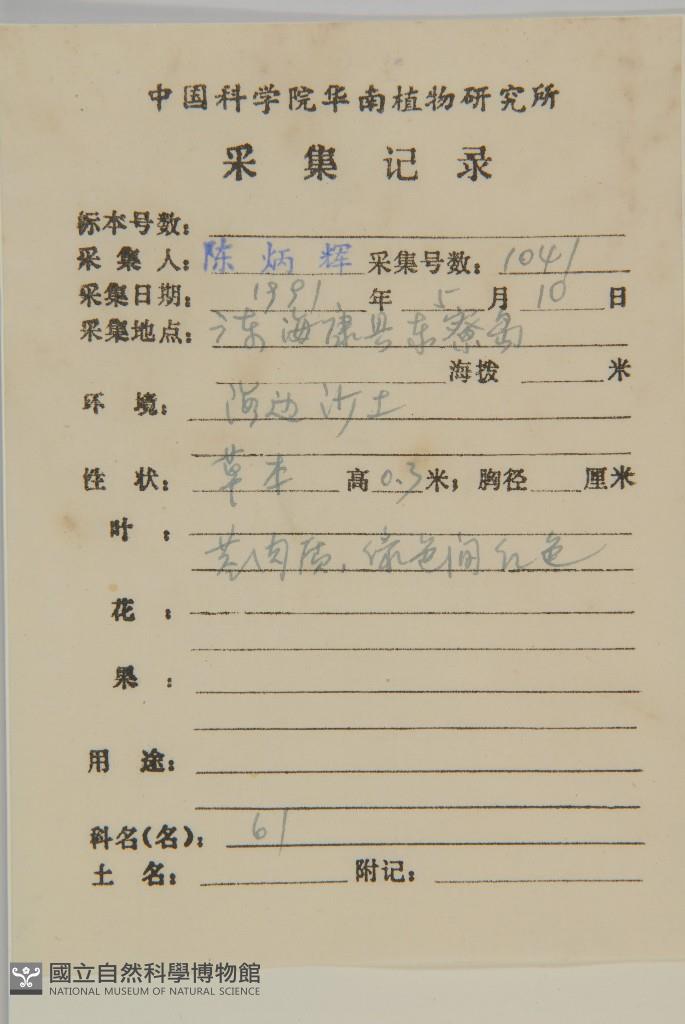 中国科学院华南植物研究所
采集记录
标本号数:
采集人: 陈炳辉 采集号数: 1041
采集日期: 1991 年 5 月 10 日
采集地点: 广东海康县东寮岛
海拨 米
环境: 海边沙土
性状: 草本 高 0.3 米; 胸径 厘米
叶:
肉质, 绿色间红色
花:
果:
用途:
科名(名): 61
土名: 附记:
國立自然科學博物館
NATIONAL MUSEUM OF NATURAL SCIENCE